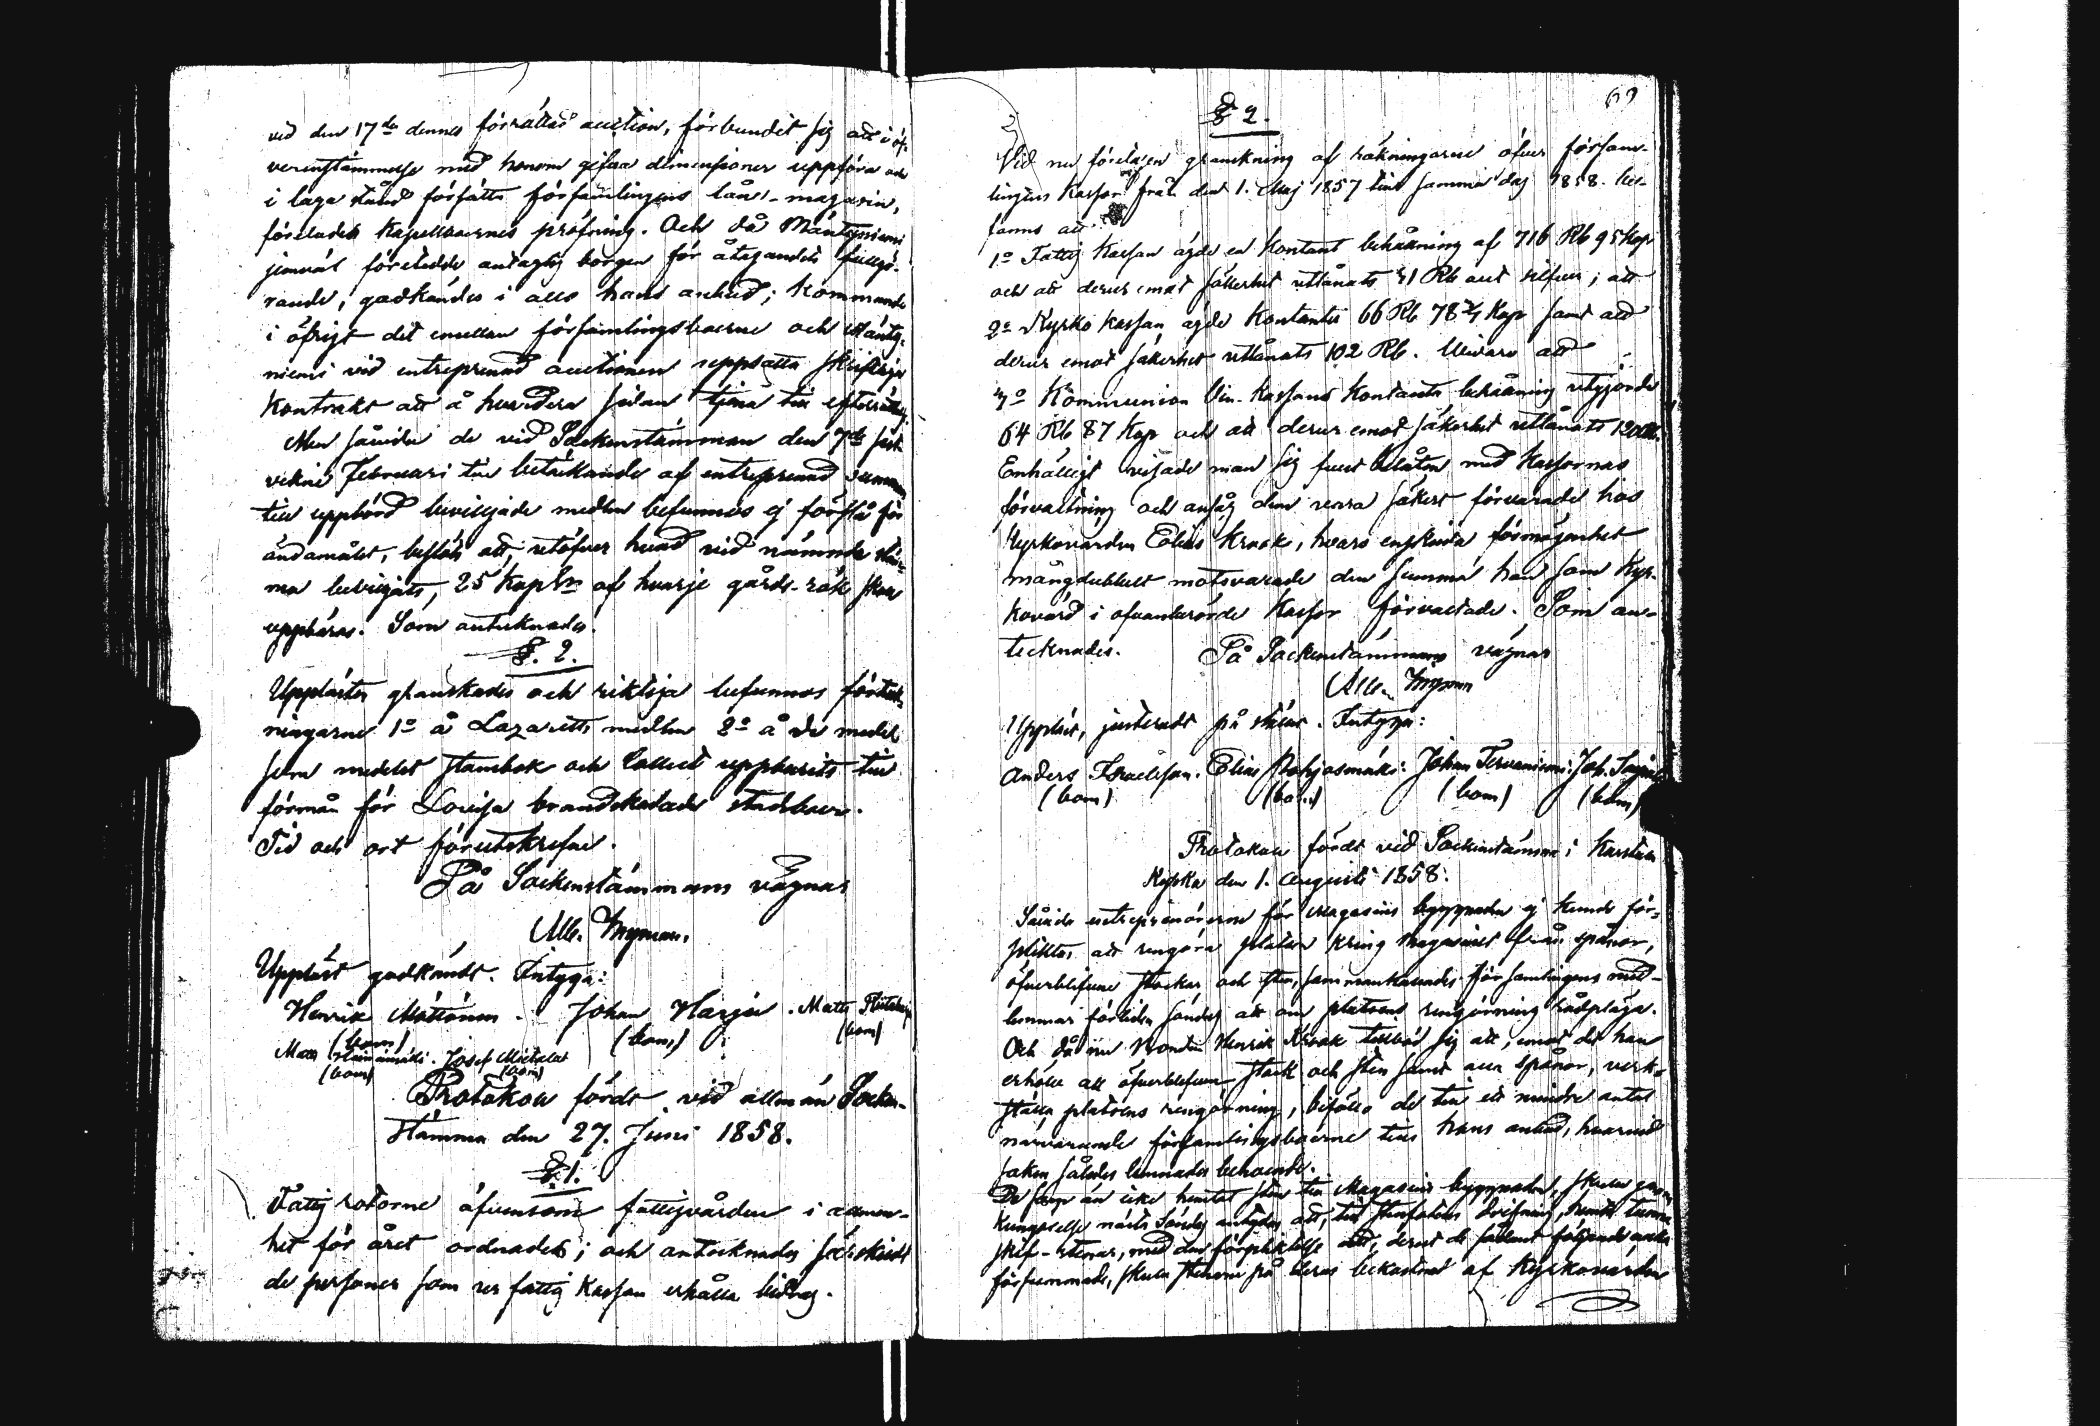 vid den 17de dennes förrättad auction, förbundit sig att i öf-
verensstämmelse med honom gifna dimensioner uppföra och
i laga stånd försätta församlingens lån-magasin,
föreludes Kapellboernes pröfning. Och då Mäntyniemi
jemväl företedde antaglig borgen för åtagandets fullgö-
rande, godkändes i allo hans anbud; kommande
i öfrigt det emellan församlingsboerne och Mänty-
niemi vid entreprenad auctionen uppsatta skriftliga
Kontrakt att å hvardera sidan tjena till efterrättelse.
Men såvida de vid Sockenstämman den 7de sist-
vikne Februari till betäckande af entreprenad summan
till uppbörd beviljade medlen befunnos ej förslå för
ändamålet, beslöts att, utöfver hvad vid nämnde stäm-
ma beviljats, 25 Kop Sr af hvarje gårds-rök skall
uppbäras. Som antecknades.
§. 2.
Upplästes granskades och riktiga befunnos förteck-
ningarne 1o å Lazaretts medlen 2o å de medel
som medelst stambok och Collect uppburits till
förmån för Lovisa brandskadade stadsboer.
Tid och ort förutskrefne.
På Sockenstämmans vägnar
Alb. Nyman.
Uppläst godkändt. Intyga:
Henrik Möttönen. Johan Harju. Matts
(bom) (bom) (bom)
Matts Josef
(bom) (bom)
Protokoll fördt vid allmän Socken-
stämma den 27. Juni 1858.
§.1.
Fattig rotorne äfvensom fattigvården i allmän-
het för året ordnades; och antecknades särskildt
de personer som ur fattig Kassan erhålla bidrag.
69
§ 2.
Vid nu företagen granskning af räkningarne öfver försam-
lingens Kassor från den 1. Maj 1857 till samma dag 1858. be-
fanns att
1o Fattig Kassan ägde en kontant behållning af 716 Rb 95 Kop
och att derur emot säkerhet utlånats 41 Rb allt silfver; att
2o Kyrko kassan ägde kontanter 66 Rb 78 3/4 Kop samt att
derur emot säkerhet utlånats 102 Rb. Vidare att
3o Kommunion Vin-Kassans kontanta behållning utgjorde
64 Rb 87 Kop och att derur emot säkerhet utlånats 120 Rb.
Enhälligt visade man sig fullt belåten med Kassornas
förvaltning och ansåg dem vara säkert förvarade hos
Kyrkovärden Elias Krook, hvars enskilda förmögenhet
mångdubbelt motsvarade den summa han som Kyr-
kovärd i ofvanberörde Kassor förvaltade. Som an-
tecknades.
På Sockenstämmans vägnar
Alb. Nyman
Uppläst, justeradt på stället. Intyga:
Anders Israelsson. Elias Pohjasmäki: Johan Tervaniemi: Joh.
(bom) (bom) (bom) (bom)
Protokoll fördt vid Sockenstämma i Karstula
Kyrka den 1. Augusti 1858.
Såvida entreprenörerne för Magasins byggnaden ej kunde för-
pliktas att rengöra platsen kring Magasinet från spånor,
öfverblifne stockar och sten, sammankallades församlingens med-
lemmar förliden söndag att om platsens rengörning rådpläga.
Och då nu Bonden Henrik Krook tillböd sig att, emot det han
erhölle all öfverblifven stock och sten samt alla spånor, verk-
ställa platsens rengörning, biföllo de till ett mindre antal
närvarande församlingsboerne till hans anbud, hvarvid
saken således lemnades beroende.
De som än icke hemtat sten till Magasins byggnaden, skulle genom
Kungörelse nästa Söndag antydas att, till stenfotens drifning, hemta
skif-stenar, med den förpliktelse att, derest de sådant följande vecka
försummade, skulle stenarne på deras bekostnad af Kyrkovärden